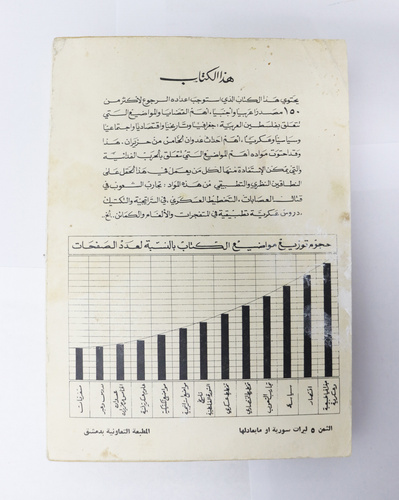 هذا الكتاب
يحتوي هذا الكتاب الذي استوجب اعداده الرجوع لاكثر من
١٥٠ مصدرا عربيا واجنبيا، اهم القضايا والمواضيع التي
تتعلق بفلسطين العربية، جغرافيا وتاريخيا واقتصاديا واجتماعيا
وسياسيا وعسكريا، اهم احداث عدوان الخامس من حزيران، هذا
وقد احتوت مواده اهم المواضيع التي تتعلق بالحرب الفدائية
والتي يمكن الاستفادة منها لكل من يعمل في هذا الحقل على
النطاقين النظري والتطبيقي من هذه المواد: تجارب الشعوب في
قتال العصابات، التخطيط العسكري، في الستراتيجية والتكتيك
دروس عسكرية تطبيقية في المتفجرات والألغام والكمائن. الخ.
حجوم توزيع مواضيع الكتاب بالنسبة لعدد الصفحات
متفرقات
مواضيع فنية
تاريخ
تخطيط عسكري
تجارب الشعوب
سياسة
اقتصاد
الثمن ٥ ليرات سورية او مايعادلها
المطبعة التعاونية بدمشق